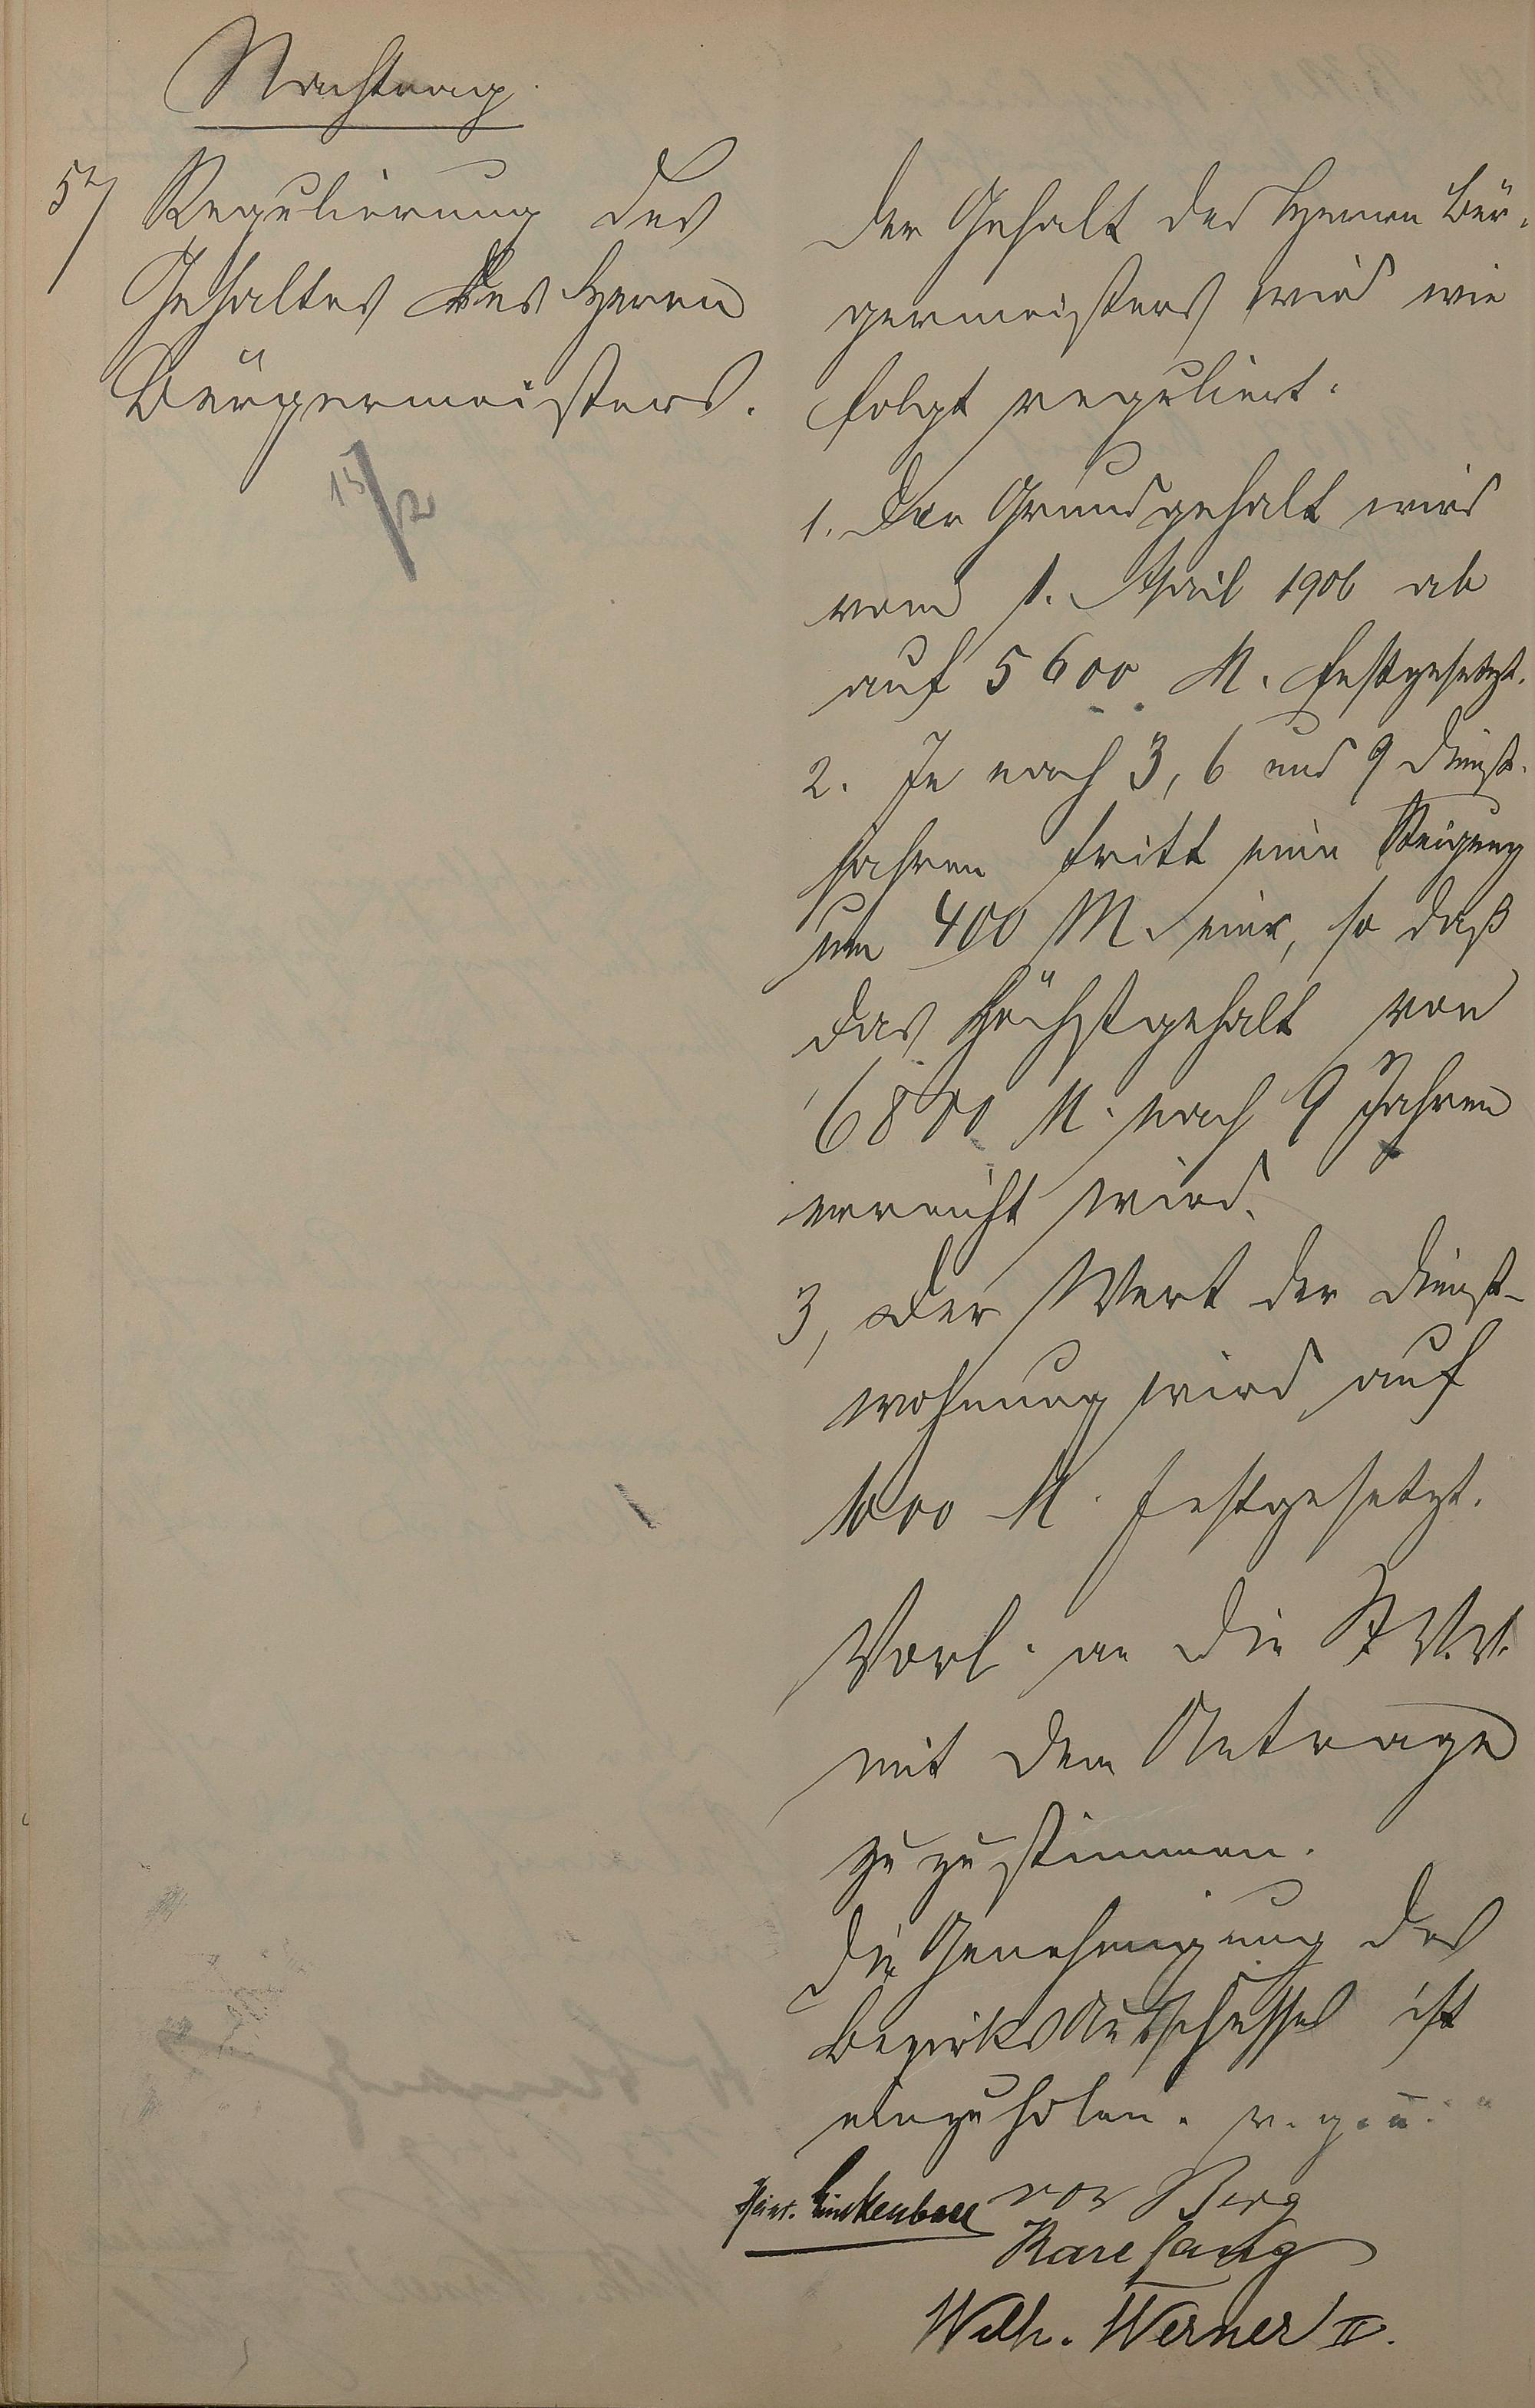 Nachtrag.
57/ Regulierung des
Gehaltes des Herrn
Bürgermeisters.
15/2
Der Gehalt des Herrn Bür-
germeisters wird wie
folgt reguliert:
1. Der Grundgehalt wird
vom 1. April 1906 ab
auf 5600 M. festgesetzt.
2. Je nach 3, 6 und 9 Dienst-
jahren tritt eine Steigung
um 400 M. ein, so daß
das Höchstgehalt von
6800 M. nach 9 Jahren
erreicht wird.
3, Der Wert der Dienst-
wohnung wird auf
1000 M. festgesetzt.
Vorl. an die St.V.V.
mit dem Antrage
zuzustimmen.
Die Genehmigung des
Bezirksausschusses ist
einzuholen. v. g. u.
von Berg
Heinr.
Karl Lang
Wilh. Werner II.